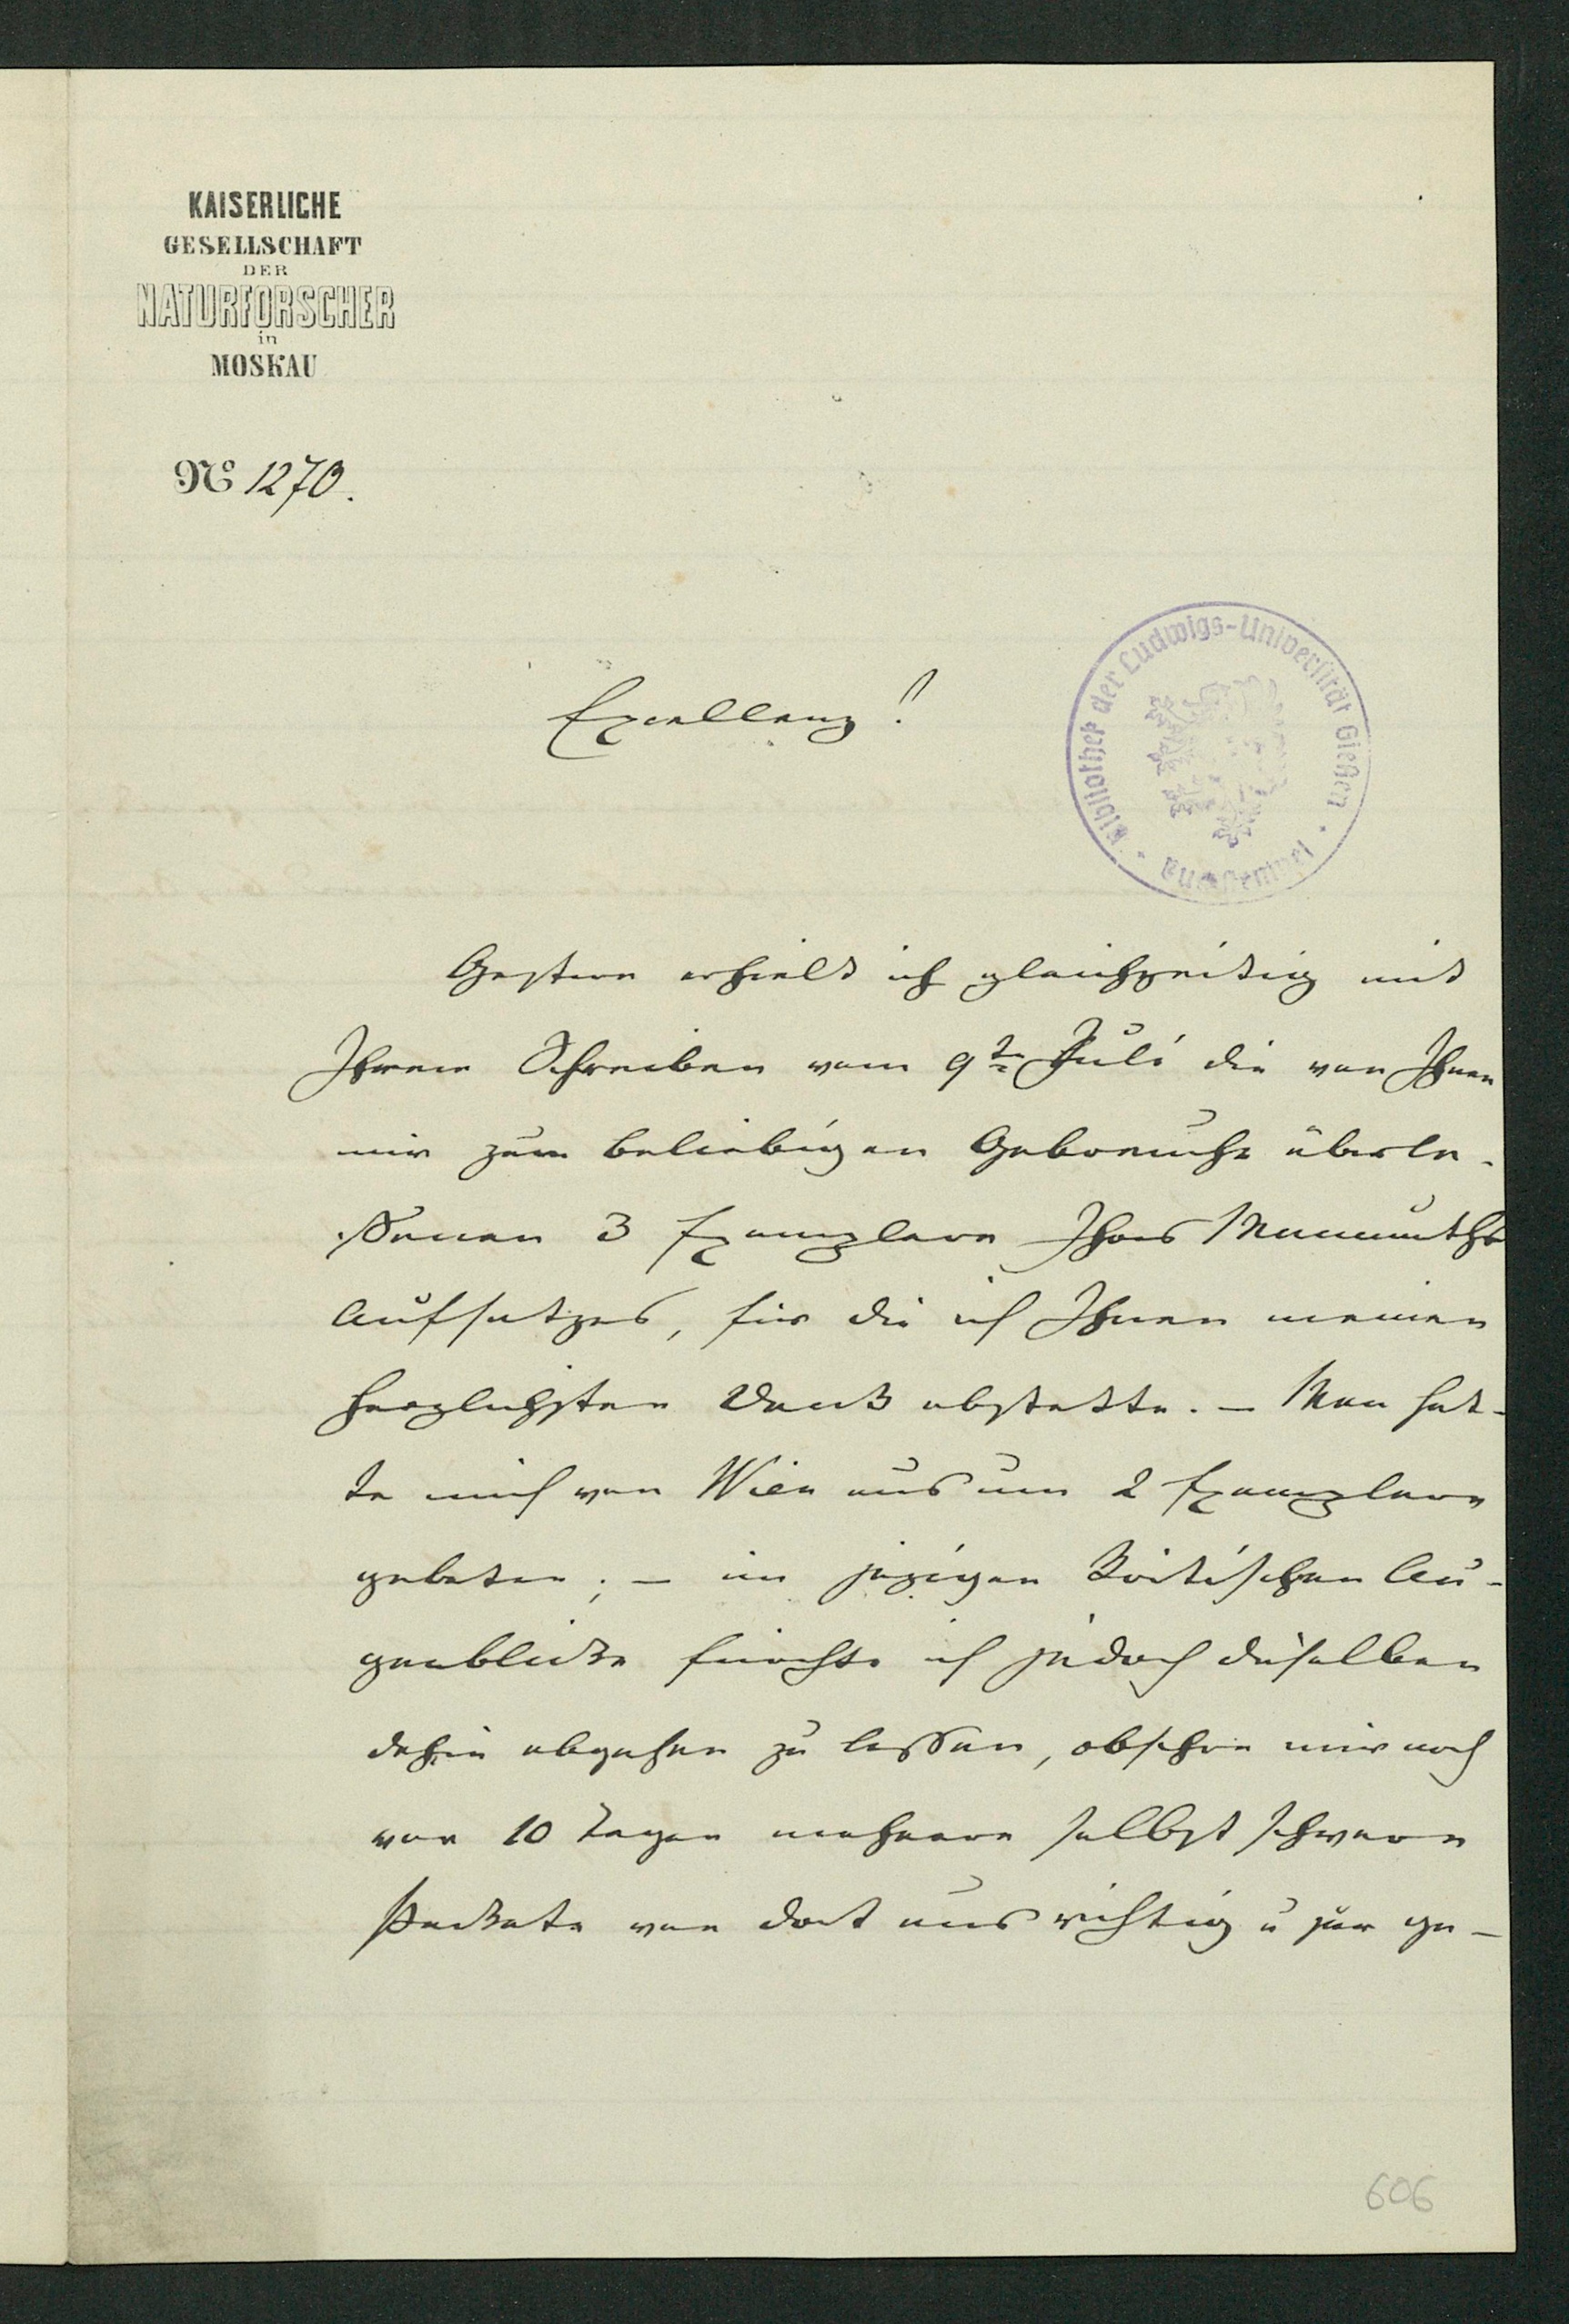 KAISERLICHE
GESELLSCHAFT
DER
NATURFORSCHER
in
MOSKAU
№ 1270.
Excellenz!
Bibliothek der Ludwigs-Universität Gießen
Gestern erhielt ich gleichzeitig mit
Ihrem Schreiben vom 9ten Juli die von Ihnen
mir zum beliebigen Gebrauche überla-
ssenen 3 Exemplare Ihres Mammuths
Aufsatzes, für die ich Ihnen meinen
herzlichsten Dank abstatte. – Man hat-
te mich von Wien aus um 2 Exemplare
gebeten; – im jezigen kritischen Au-
genblicke fürchte ich jedoch dieselben
dahin abgehen zu lassen, obschon mir noch
vor 10 Tagen mehrere selbst schwere
Packete von dort aus richtig u zur ge-
606